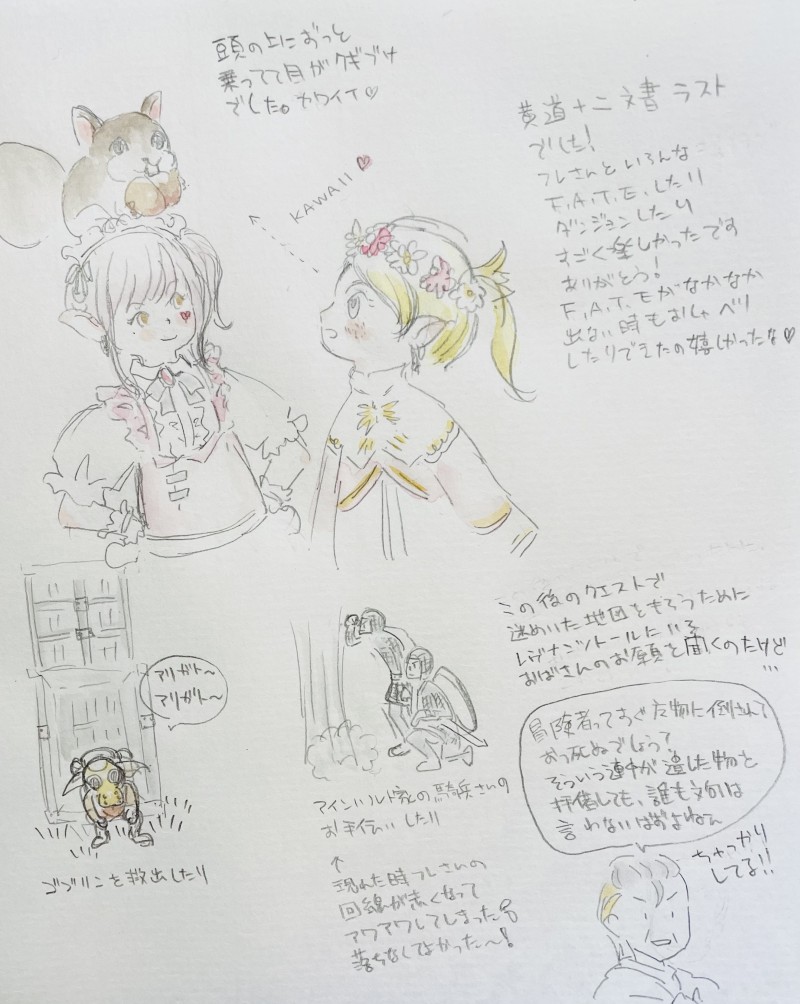 頭の上にずっと
乗ってて目がクギづけ
でした。カワイイ♡
KAWAII♥
黄道十二文書 ラスト
でした!
フレさんといろんな
F.A.T.E.したり
ダンジョンしたり
すごく楽しかったです
ありがとう!
F.A.T.Eがなかなか
出ない時もおしゃべり
したりできたの嬉しかったな♡
アリガト〜
アリガト〜
ゴブリンを救出したり
アインハルト家の騎兵さんの
お手伝いしたり
↑
現れた時フレさんの
回線が赤くなって
アワアワしてしまった
落ちなくてよかった〜!
この後のクエストで
謎めいた地図をもらうために
レヴナンツトールにいる
おばさんのお願を聞くのたけど
…
冒険者ってすぐ魔物に倒されて
おっ死ぬでしょう?
そういう連中が遺した物を
拝借しても、誰も文句は
言わないはずよねぇ
ちゃっかり
してる!!